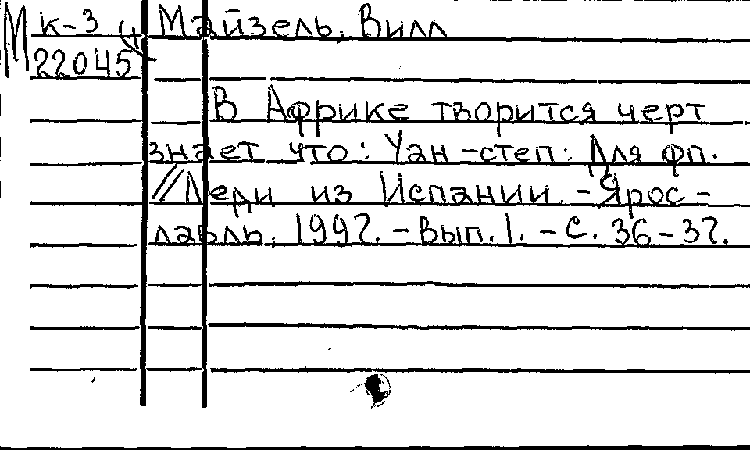 М к-3 Майзель, Вилл
22045
В Африке творится черт
знает что: Уан-степ: Для фп.
//Леди из Испании. - Ярос-
лавль, 1992. - Вып. 1. - С. 36-37.